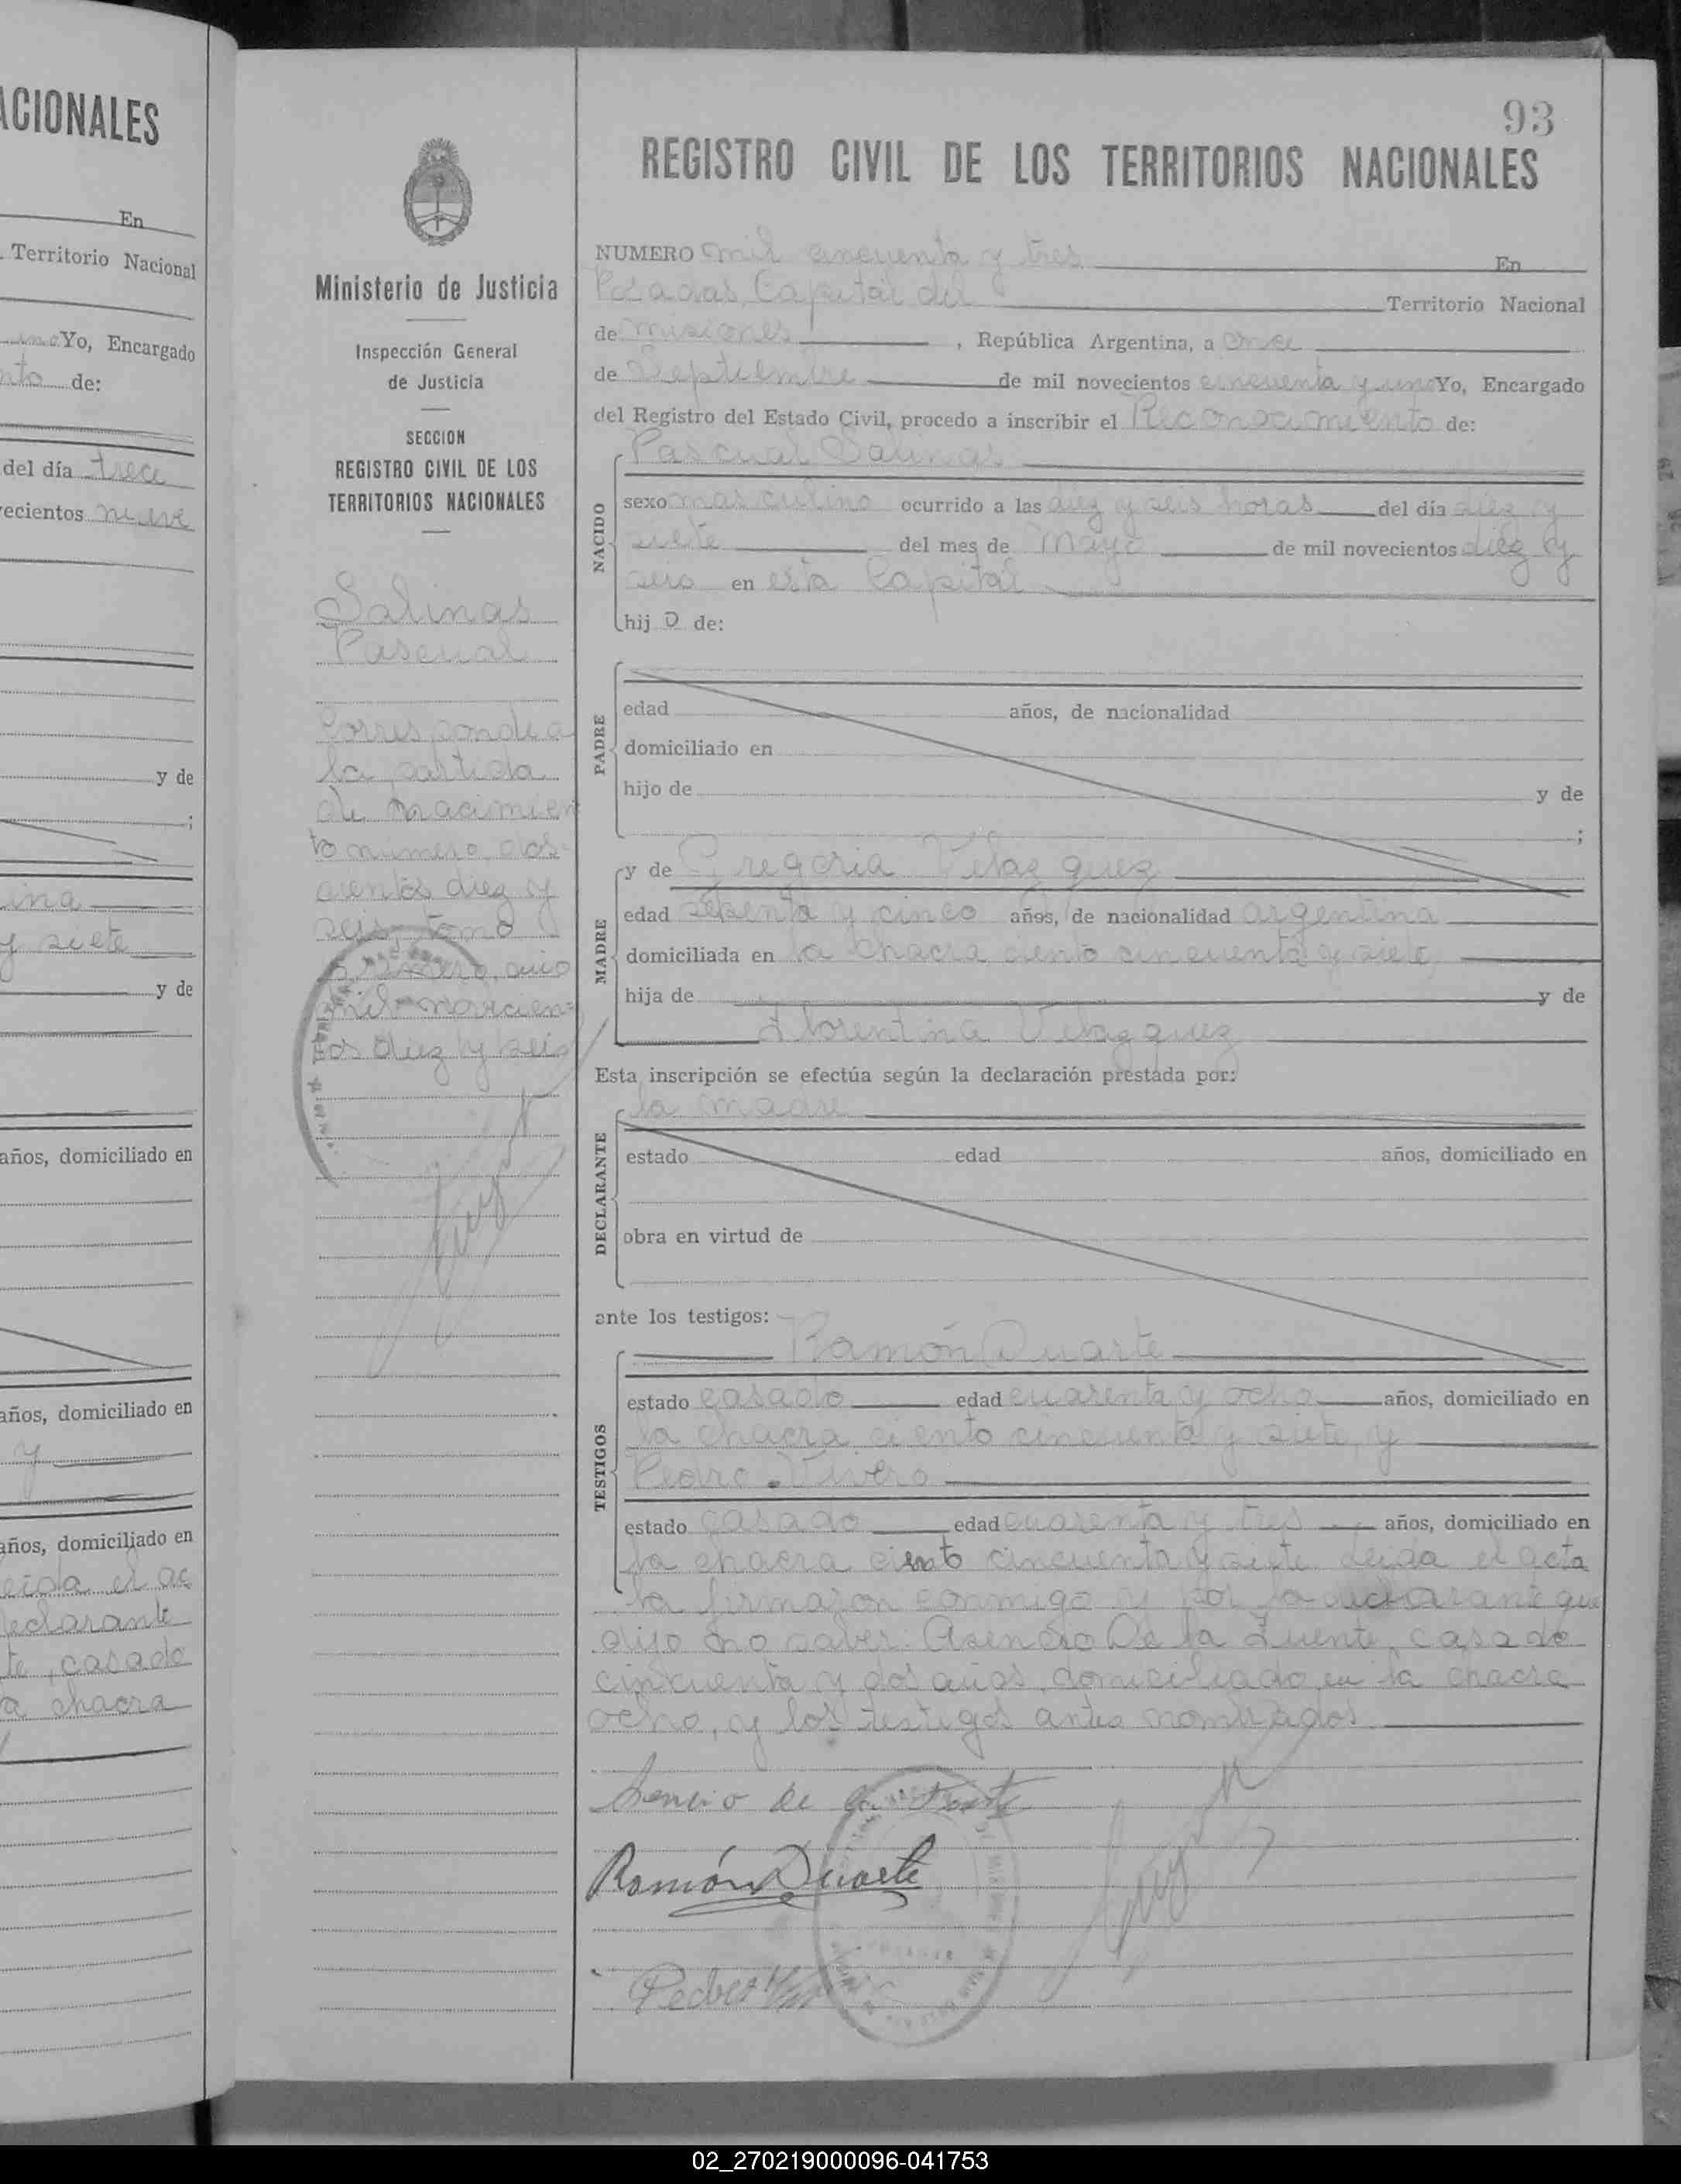 ACIONALES
En
Territorio Nacional
Yo, Encargado
nto de:
del día trece
ecientos nueve
y de
;
ina
y siete
y de
años, domiciliado en
años, domiciliado en
y
años, domiciliado en
eida el ac
eclarante
te, casado
a chacra
Ministerio de Justicia
Inspección General
de Justicia
SECCION
REGISTRO CIVIL DE LOS
TERRITORIOS NACIONALES
Salinas
Pascual
Corresponde a
la partida
de nacimien
to numero dos-
cientos diez y
seis, tomo
primero, año
mil novecien-
tos diez y seis
93
REGISTRO CIVIL DE LOS TERRITORIOS NACIONALES
NUMERO mil cincuenta y tres En
Posadas, Capital del Territorio Nacional
de Misiones, República Argentina, a once
de Septiembre de mil novecientos cincuenta y uno Yo, Encargado
del Registro del Estado Civil, procedo a inscribir el Reconocimiento de:
Pascual Salinas
NACIDO
sexo masculino ocurrido a las diez y seis horas del día diez y
siete del mes de Mayo de mil novecientos diez y
seis en esta Capital
hij o de:
PADRE
edad años, de nacionalidad
domiciliado en
hijo de y de
;
MADRE
y de Gregoria Velazquez
edad y cinco años, de nacionalidad argentina
domiciliada en la chacra ciento cincuenta y siete
hija de y de
Florentina Velazquez
Esta inscripción se efectúa según la declaración prestada por:
la madre
DECLARANTE
estado edad años, domiciliado en
obra en virtud de
ante los testigos:
Ramón Duarte
TESTIGOS
estado casado edad cuarenta y ocho años, domiciliado en
la chacra ciento cincuenta y siete, y
Pedro Vivero
estado casado edad cuarenta y tres años, domiciliado en
la chacra ciento cincuenta y siete leida el acta
la firmaron conmigo y por la declarante que
dijo no saber Asencio De la Fuente, casado
cincuenta y dos años, domiciliado en la chacra
ocho, y los testigos antes nombrados
Asencio de la Fuente
Ramón Duarte
Pedro
02_270219000096-041753